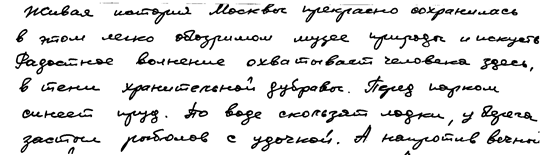 Живая история Москвы прекрасно сохранилась
в этом легко обозримом музее природы и искусств
Радостное волнение охватывает человека здесь,
в тени хранительной дубравы. Перед парком
синеет пруд. По воде скользят лодки, у берега
застыл рыболов с удочкой. А напротив вечный